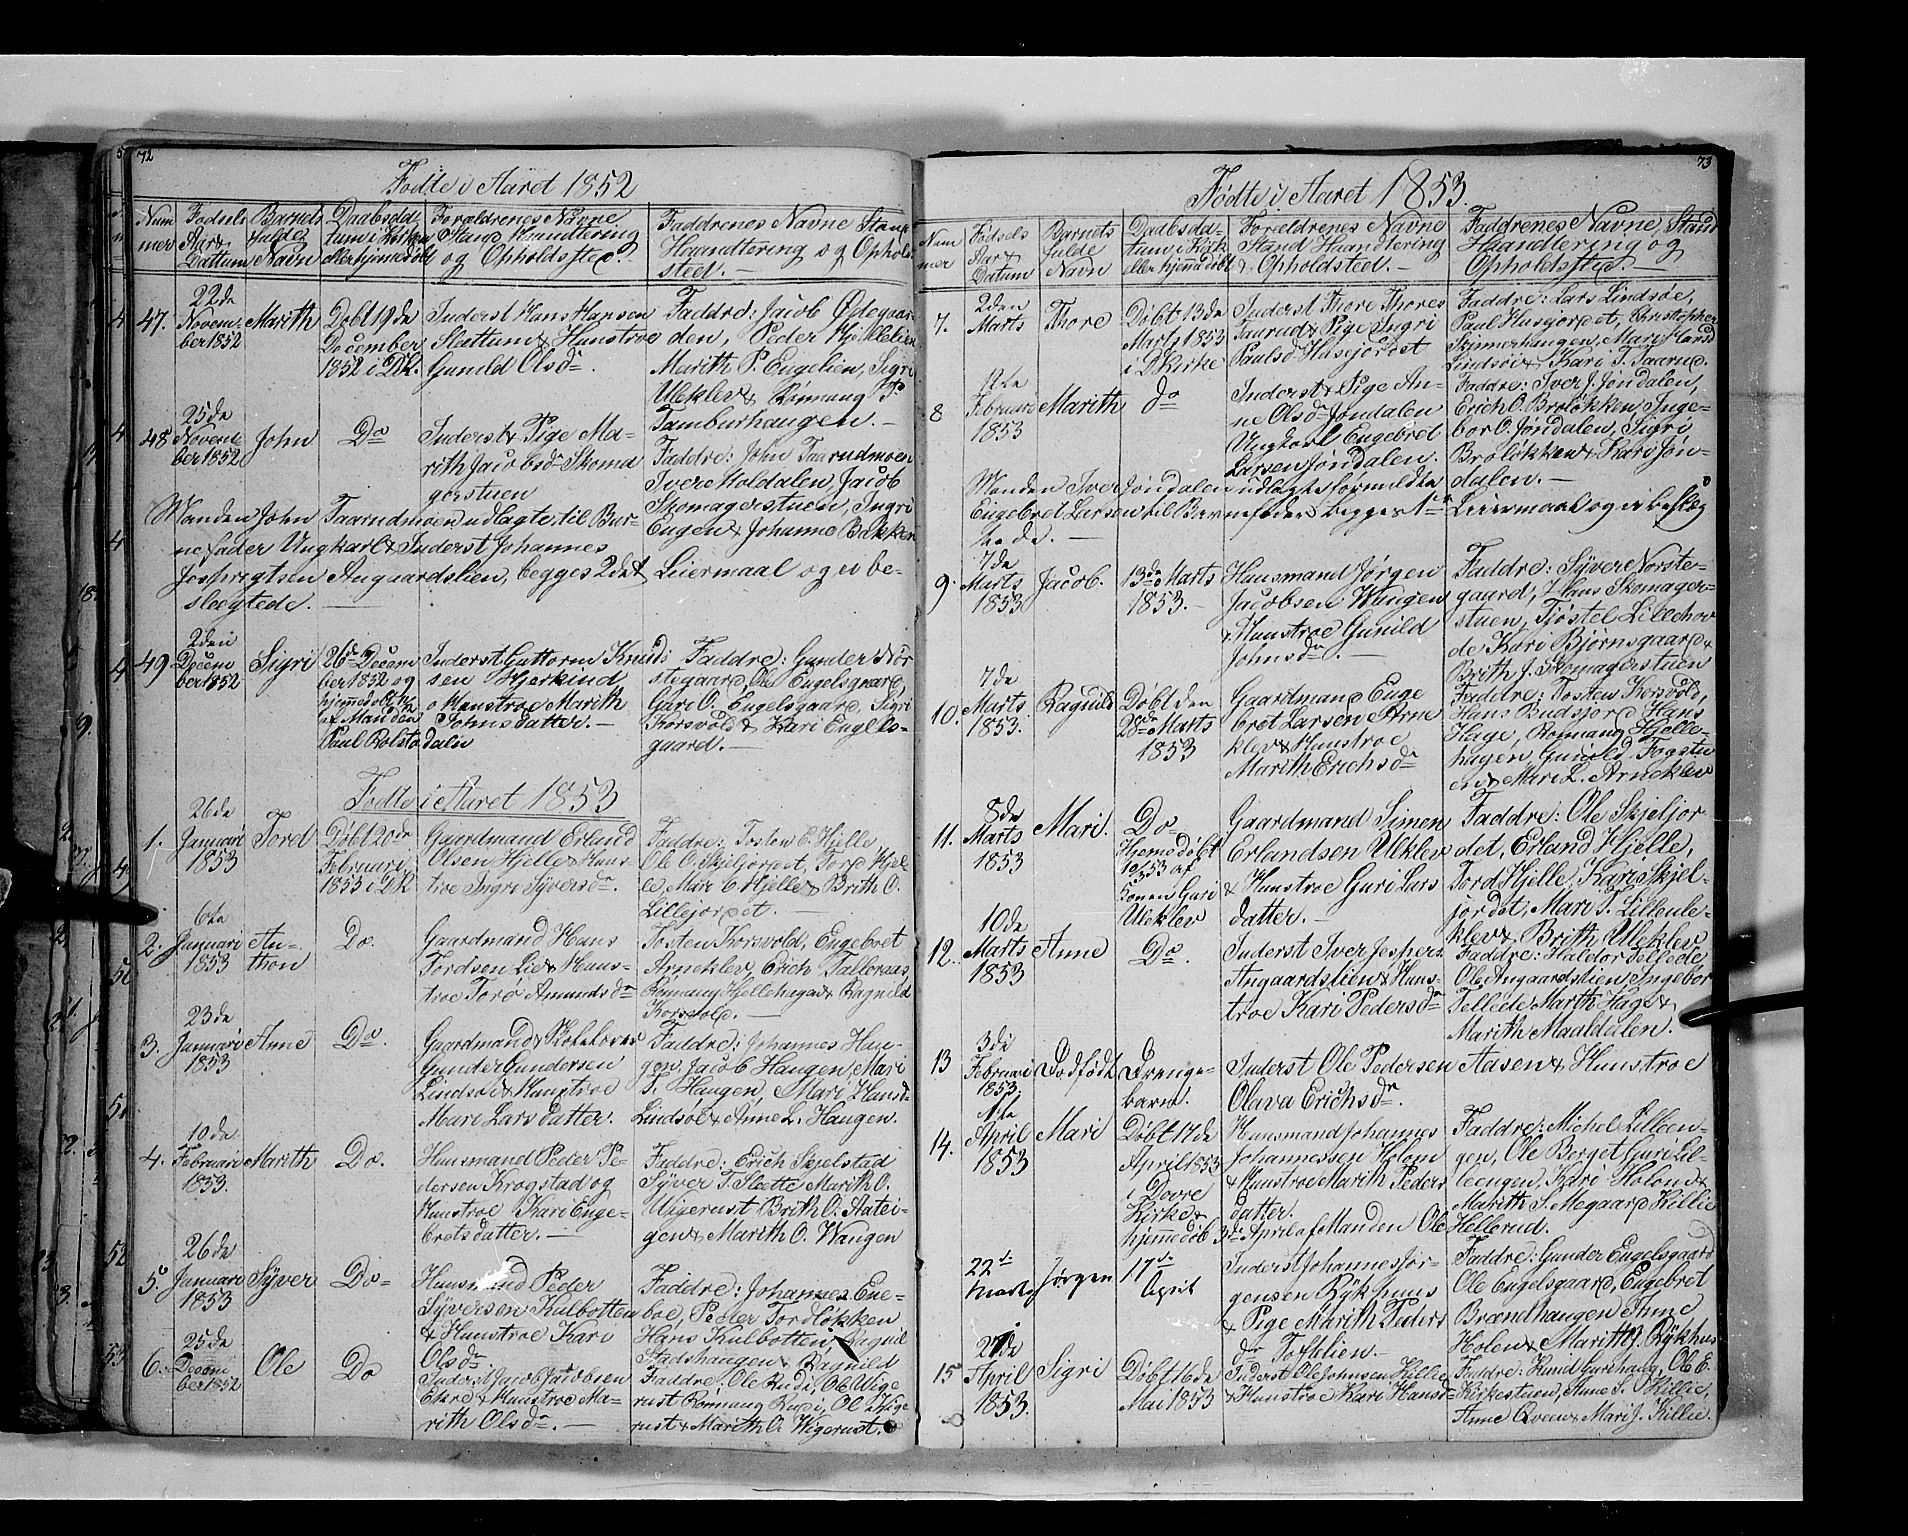 72
Fødte i Aaret 1852
Num
mer
Fødsels
Aar &
Dattum
Barnets
fulde
Navn
Daabsda-
tum i Kirken
eller hjemedøbt
Forældrenes Navne
Stand Haandtering
og Opholdsted.
Faddrenes Navne Stand
Haandtering og Ophold-
sted. —
47.
22de
Novem-
ber 1852
Marith
Døbt 19de
December
1852 i D.K.
Inderst Hans Hansen
Slettum & Hunstroe
Gunild Olsdr.
Faddre: Jacob Ødegaar-
den, Peder Hjellelien
Marith P. Engelien, Sigri
Uleklev & Rønnaug P.
Tamburhaugen. —
48
25de
Novem-
ber 1852
John
Do
Inderst & Pige Ma-
rith Jacobsdr Skoma-
gerstuen
Faddre: John Taarudmoen
Iver Moldalen, Jacob
Skomagerstuen, Ingri
Eugen & Johanne Bakken
Manden John Taarudmoen udlagte til Bar-
nefader Ungkarl & Inderst Johannes
Jespersen Angaardslien, begges 2det Leiermaal og er be-
slegtede. —
49
2den
Decem
ber 1852
Sigri
26de Decem
ber 1852 og
hjemedøbt
af Manden
Paul Rolstadalen
Inderst Guttorm Knud-
sen Hjerkind
& Hunstroe Marith
Johnsdatter. —
Faddre: Gunder Nør-
stegaard, Ole Engelsgaard,
Guri O. Engelsgaard, Sigri
Korsvold & Kari Engels-
gaard. —
Fødte i Aaret 1853
1.
26de
Januari
1853
Tord
Døbt 20de
Februari
1853 i D.K
Gaardmand Erland
Olsen Hjelle & Huns-
troe Ingri Syversdr.
Faddre: Tosten E. Hjelle,
Ole O. Skjeljordet, Tord Hjel-
le, Mari E. Hjelle & Brith O.
Lillejordet. —
2.
6te
Januari
1853
An-
thon
Do.
Gaardmand Hans
Tordsen Lie & Huns-
troe Torø Amundsdr
Tosten Korsvold, Engebret
Arneklev, Erich Talleraas,
Rønnaug Hjellehage & Ragnild
Korsvold. —
3.
23de
Januari
1853
Anne
Do.
Gaardmand
Gunder Gundersen
Lindsøe & Hunstroe
Mari Larsdatter.
Faddre: Johannes Hau-
gen, Jacob Haugen, Mari
T. Haugen, Mari Hansdr
Lindsøe & Anne L. Haugen.
4.
10de
Februari
1853.
Marith
Do.
Husmand Peder Pe-
dersen Krogstad og
Hunstroe Kari Enge-
bretsdatter. —
Faddre: Erich Skjelstad
Syver T. Slette Marith O.
Wigerust Brith O. Statei-
gen & Marith O. Wangen
5
26de
Januari
1853
Syver
Do-
Husmand Peder
Syversen Kulbotten
& Hunstroe Kari
Olsdr
Faddre: Johannes Ene-
boe, Peder Tordløkken
Hans Kulbotten, Ragnil
Stadshaugen & Ragnild
6.
25de
Decem
ber 1852
Ole
Do
Inderst Jacob Jacobsen
Ekre & Hunstroe Ma-
rith Olsdr. —
Faddre: Ole Rudi, Ole Wige-
rust Rønnaug Rudi, Ole Wige
rust & Marith O. Wigerust.
73
Fødte i Aaret 1853.
Num
mer
Fødsels
Aar &
Datum
Barnets
fulde
Navn
Daabsda-
tum i Kirk
eller hjemedøbt
Forældrenes Navne
Stand Haandtering
& Opholdsted. —
Faddrenes Navne, Stand
Haandtering og
Opholdssted. —
7.
2den
Marts
Thore
Døbt 13de
Marts 1853
i D Kirke
Inderst Thore Thores
Taarud & Pige Ingri
Paulsdr Husejordet
Faddre: Lars Lindsøe,
Paul Husejordet, Christopher
Skinnerhaugen, Mari Hansd
Lindsøe & Kari T. Taarud.
8
12te
Februari
1853
Marith
do
Inderst & Pige An-
ne Olsdr Jøndalen
Ungkarl Engebret
Larsen Jøndalen.
Faddre: Iver J. Jøndalen,
Erich O. Broløkken, Inge-
bor O. Jøndalen, Sigri
Broløkken & Kari Jøn-
dalen. —
Manden Iver Jøndalen udlagte formeldte
Engebret Larsen til Barnefader begges 1te Leiermaal og er beslæg
tede. —
9.
7de
Marts
1853
Jacob.
13de Marts
1853. —
Husmand Jørgen
Jacobsen Wangen
& Hunstroe Gunild
Johnsdr. —
Faddre: Syver Norste-
gaard, Hans Skomager-
stuen, Tjøstel Lillehov
de Kari Bjørnsgaard &
Brith J. Skomagerstuen
10.
7de
Marts
1853.
Ragnild
Døbt den
28de Marts
1853
Gaardmand Enge
bret Larsen Arne
klev & Hunstroe
Marith Erichsdr
Faddre: Tosten Korsvold,
Hans Budsjord Hans
Hage, Rønnaug Hjelle-
hagen, Gunild Fogstu-
en & Mari L. Arneklev
11.
8de
Marts
1853
Mari.
Do
Hjemedøbt
10/3 53 af
Konen Guri
Uleklev
Gaardmand Simen
Erlandsen Uleklev
& Hunstroe Guri Lars
datter. —
Faddre: Ole Skjeljor
det, Erland Hjelle,
Tord Hjelle, Kari Skjel-
jordet, Mari T. Lilleule-
klev & Brith Uleklev
12.
10de
Marts
1853
Anne
Do.
Inderst Iver Jespers.
Angaardslien & Huns-
troe Kari Pedersdr
Faddre: Haldor Tellede
Ole Angaardslien, Ingebor
Tellede Marith Hage &
Marith Maaldalen.
13
3di
Februari
1853.
Dødfødt
Drenge-
barn.
Inderst Ole Pedersen Aasen & Hunstroe
Olava Erichsdr.
14.
1te
April
1853
Mari
Døbt 17de
April 1853
i Dovre
Kirke &
hjemedøb 3di April af Manden Ole Hellerud.
Husmand Johannes
Johannessen Holom
& Hunstroe Marith Peders
datter.
Faddre: Michel Lilleen-
gen, Ole Berget Guri Lil-
leengen, Kari Holom &
Marith S. Megaard Killie
22de
Marts
Jørgen
17de
April
Inderst Johannes Jør-
gensen Rykhuus
& Pige Marith Peders
dr Toftelien. —
Faddre: Gunder Engelsgaard
Ole Engelsgaard, Engebret
Brandhaugen Anne
Holen & Marith J. Rykhus
15
27de
April
1853.
Sigri
Døbt 16de
Mai 1853
Inderst Ole Johnsen Killie
& Hunstroe Kari Hansdr
Faddre: Knud Lurehaug, Ole E.
Kirkestuen, Anne S. Killie,
Anne Qveen & Mari J. Killie.